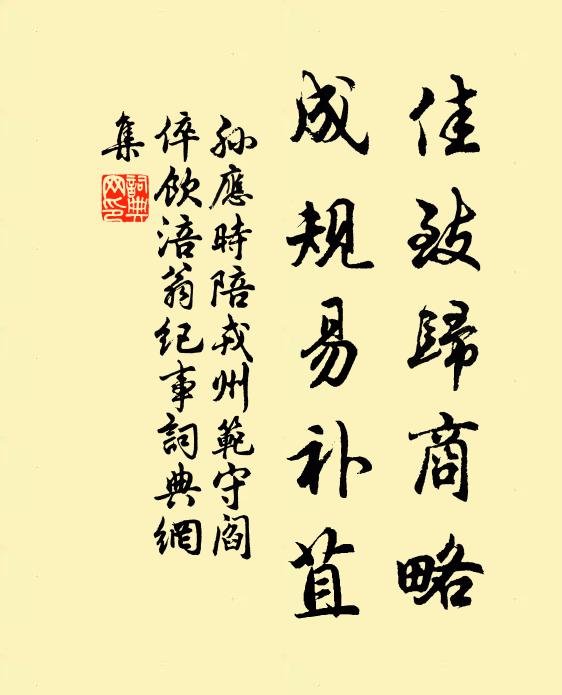 佳致歸商略
成規易补苴
孫應時陪戎州範守閻
倅飲涪翁紀事詞典網
集
詞典
网印